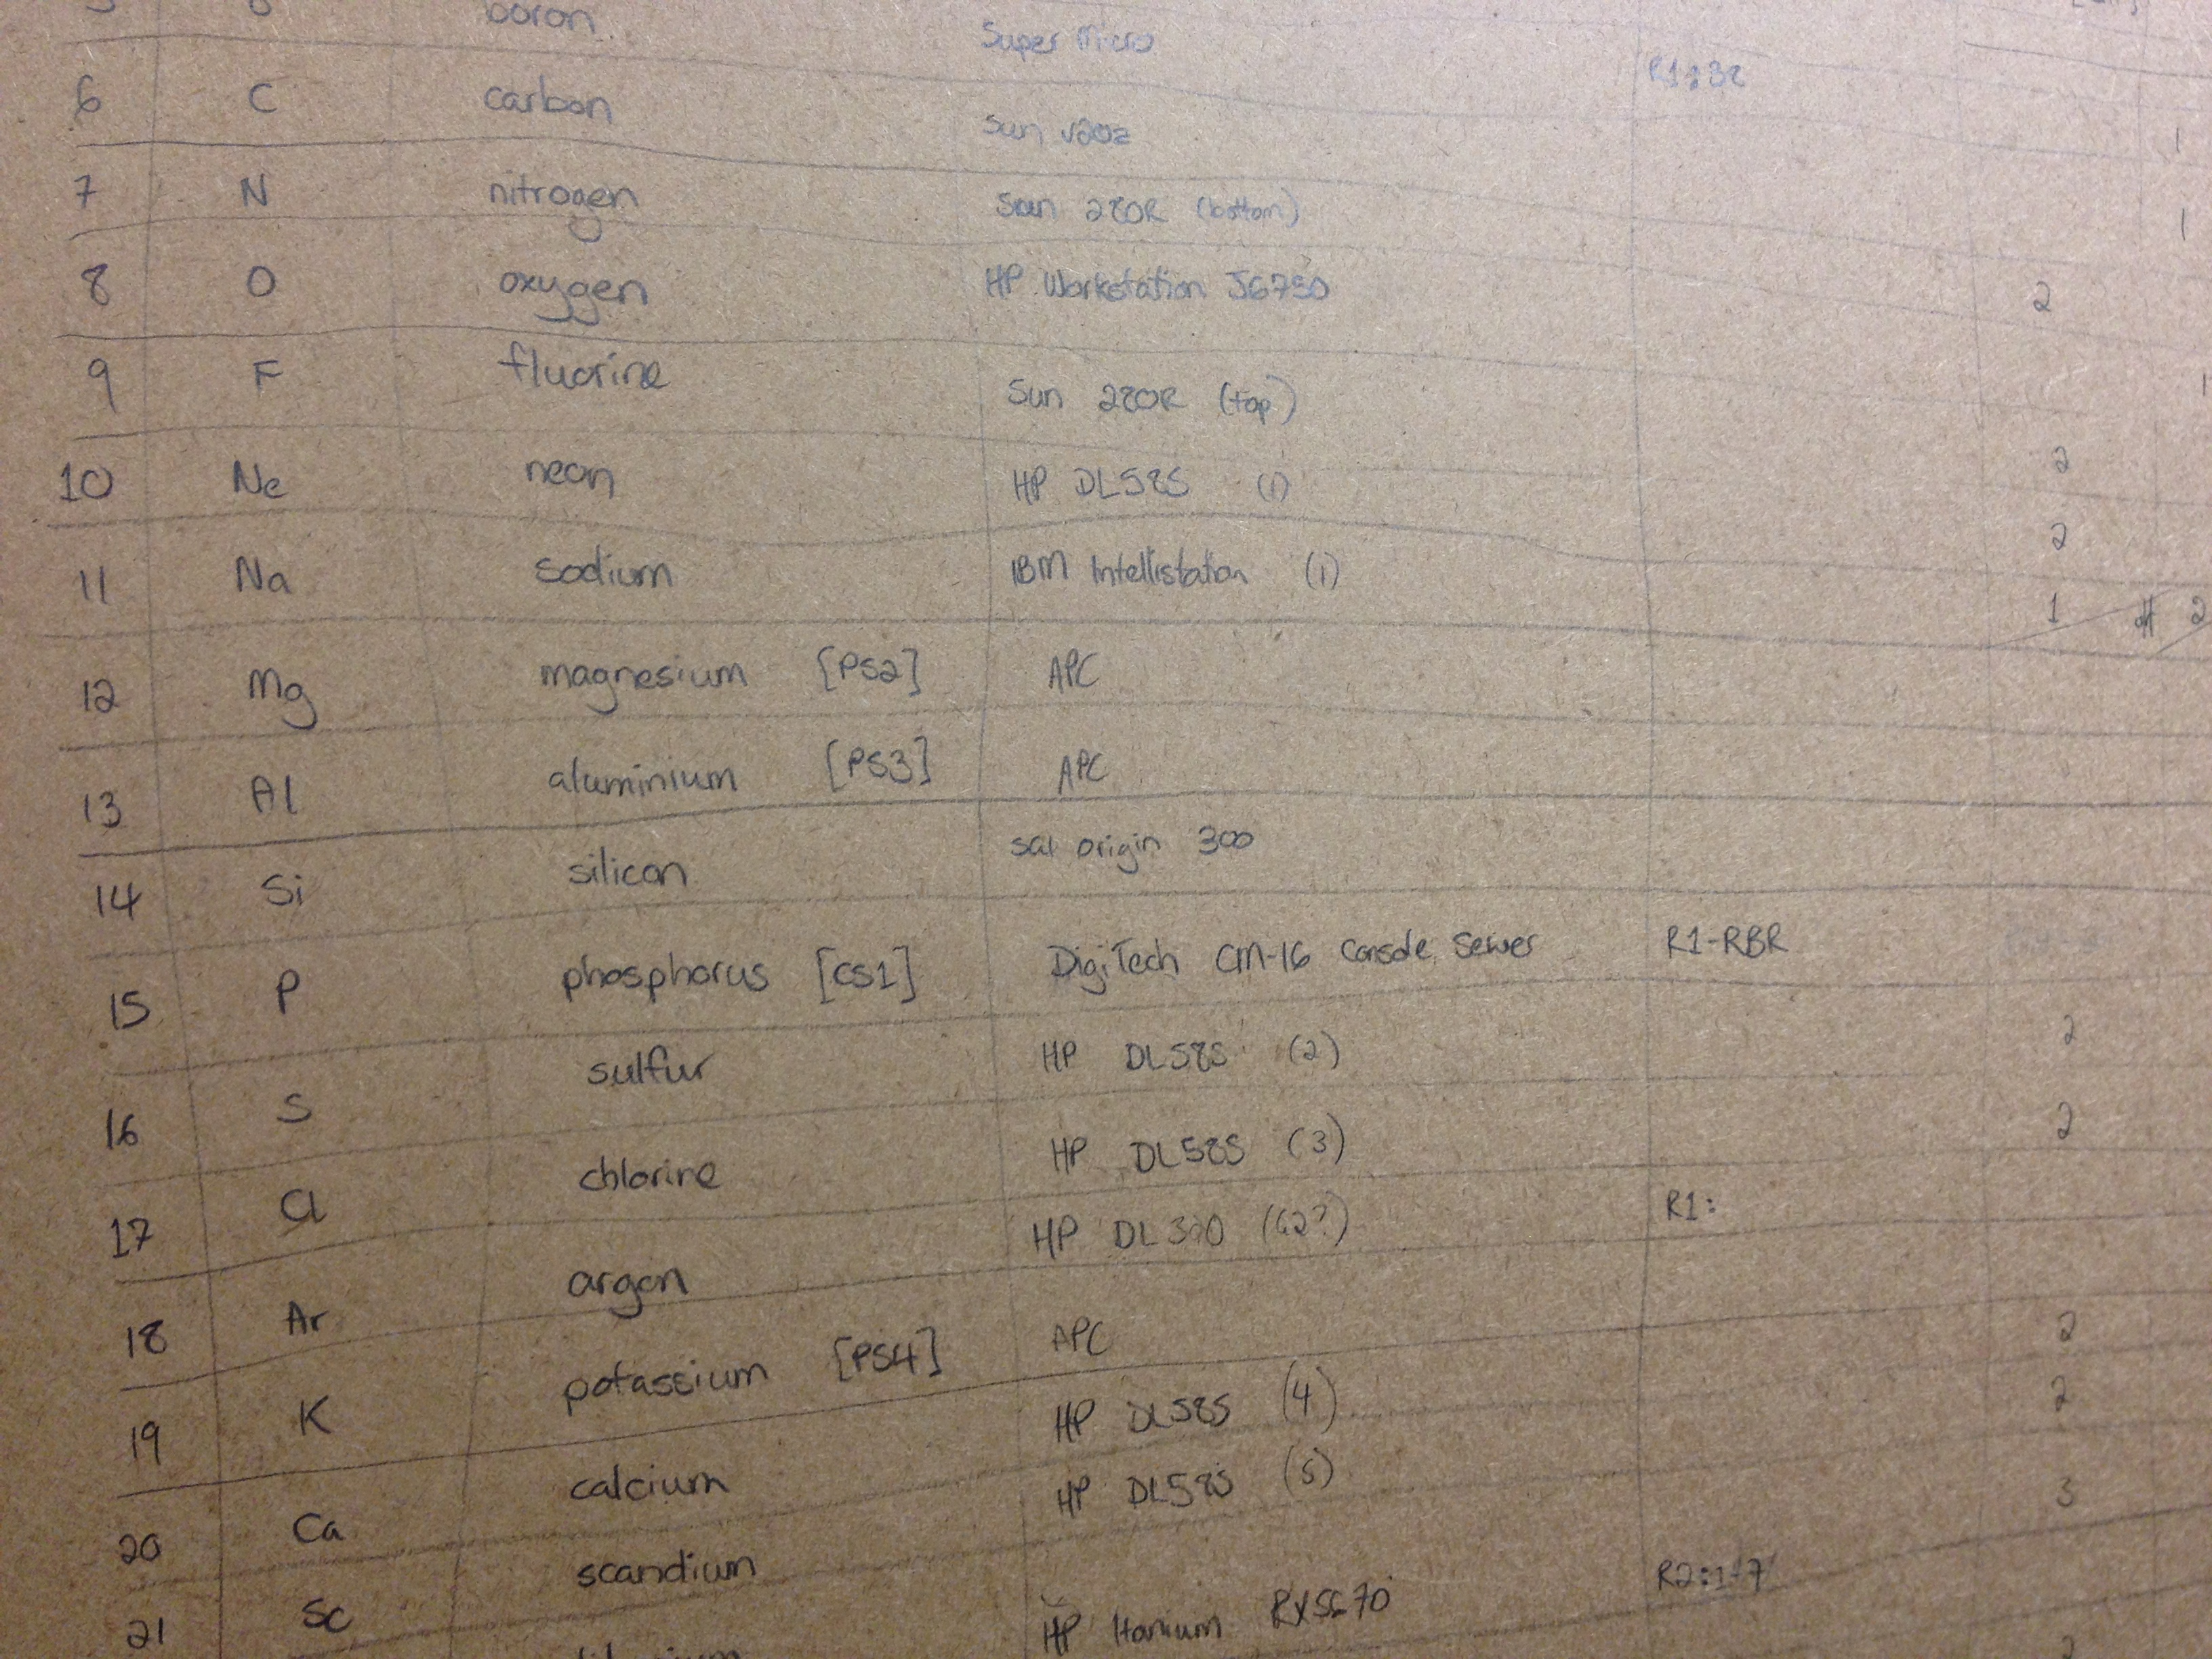 boron Super Micro
6 C carbon R1:32
Sun v20z 1
7 N nitrogen Sun 280R (bottom) 1
8 O oxygen HP Workstation J6750 2
9 F fluorine Sun 280R (top) 1
10 Ne neon HP DL585 (1) 2
11 Na sodium IBM Intellistation (1) 2
1 2
12 Mg magnesium [PS2] APC
13 Al aluminium [PS3] APC
14 Si silicon origin 300
15 P phosphorus [CS1] DigiTech CM-16 Console Server R1-RBR
16 S sulfur HP DL585 (2) 2
17 Cl chlorine HP DL585 (3) 2
18 Ar argon HP DL320 (G2?) R1:
19 K potassium [PS4] APC 2
20 Ca calcium HP DL585 (4) 2
21 Sc scandium HP DL585 (5) 3
HP Itanium RX5670 R2:1-7
2